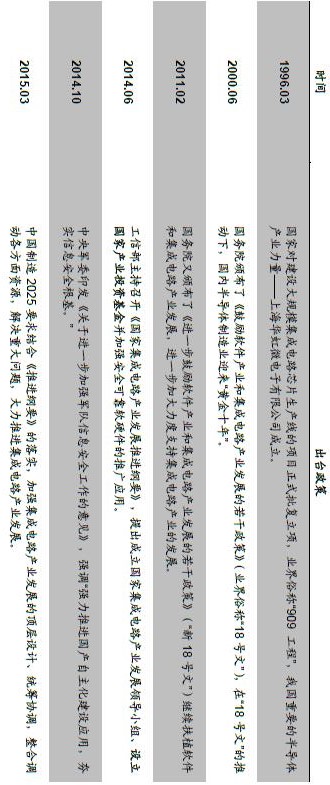 时间 出台政策
1996.03 国家对建设大规模集成电路芯片生产线的项目正式批复立项，业界俗称“909 工程”，我国重要的半导体
产业力量——上海华虹微电子有限公司成立。
2000.06 国务院颁布了《鼓励软件产业和集成电路产业发展的若干政策》（业界俗称“18 号文”），在“18 号文”的推
动下，国内半导体制造业迎来“黄金十年”。
2011.02 国务院又颁布了《进一步鼓励软件产业和集成电路产业发展的若干政策》（“新 18 号文”）继续扶植软件
和集成电路产业发展，进一步加大力度支持集成电路产业的发展。
2014.06 工信部主持召开《国家集成电路产业发展推进纲要》，提出成立国家集成电路产业发展领导小组、设立
国家产业投资基金并加强安全可靠软硬件的推广应用。
2014.10 中央军委印发《关于进一步加强军队信息安全工作的意见》，强调“强力推进国产自主化建设应用，夯
实信息安全根基。”
2015.03 中国制造 2025 要求结合《推进纲要》的落实，加强集成电路产业发展的顶层设计、统筹协调，整合调
动各方面资源，解决重大问题，大力推进集成电路产业发展。